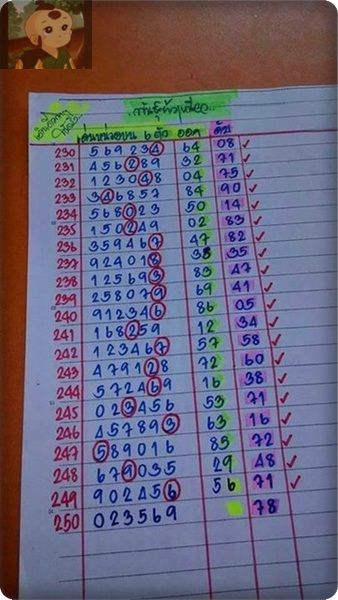 เด่นหน่วยบน 6 ตัว ออก ดับ
230 569234 64 08 ✓
231 456289 32 71 ✓
232 123048 04 75 ✓
233 346857 84 90 ✓
234 568023 50 14 ✓
235 150249 02 83 ✓
236 359467 47 82 ✓
237 924018 38 35 ✓
238 125693 83 47 ✓
239 258079 69 41 ✓
240 912346 86 05 ✓
241 168259 12 34 ✓
242 123467 57 58 ✓
243 479128 72 60 ✓
244 572469 16 38 ✓
245 023456 53 71 ✓
246 457893 63 16 ✓
247 589016 85 72 ✓
248 679035 29 48 ✓
249 902456 56 71 ✓
250 023569 78